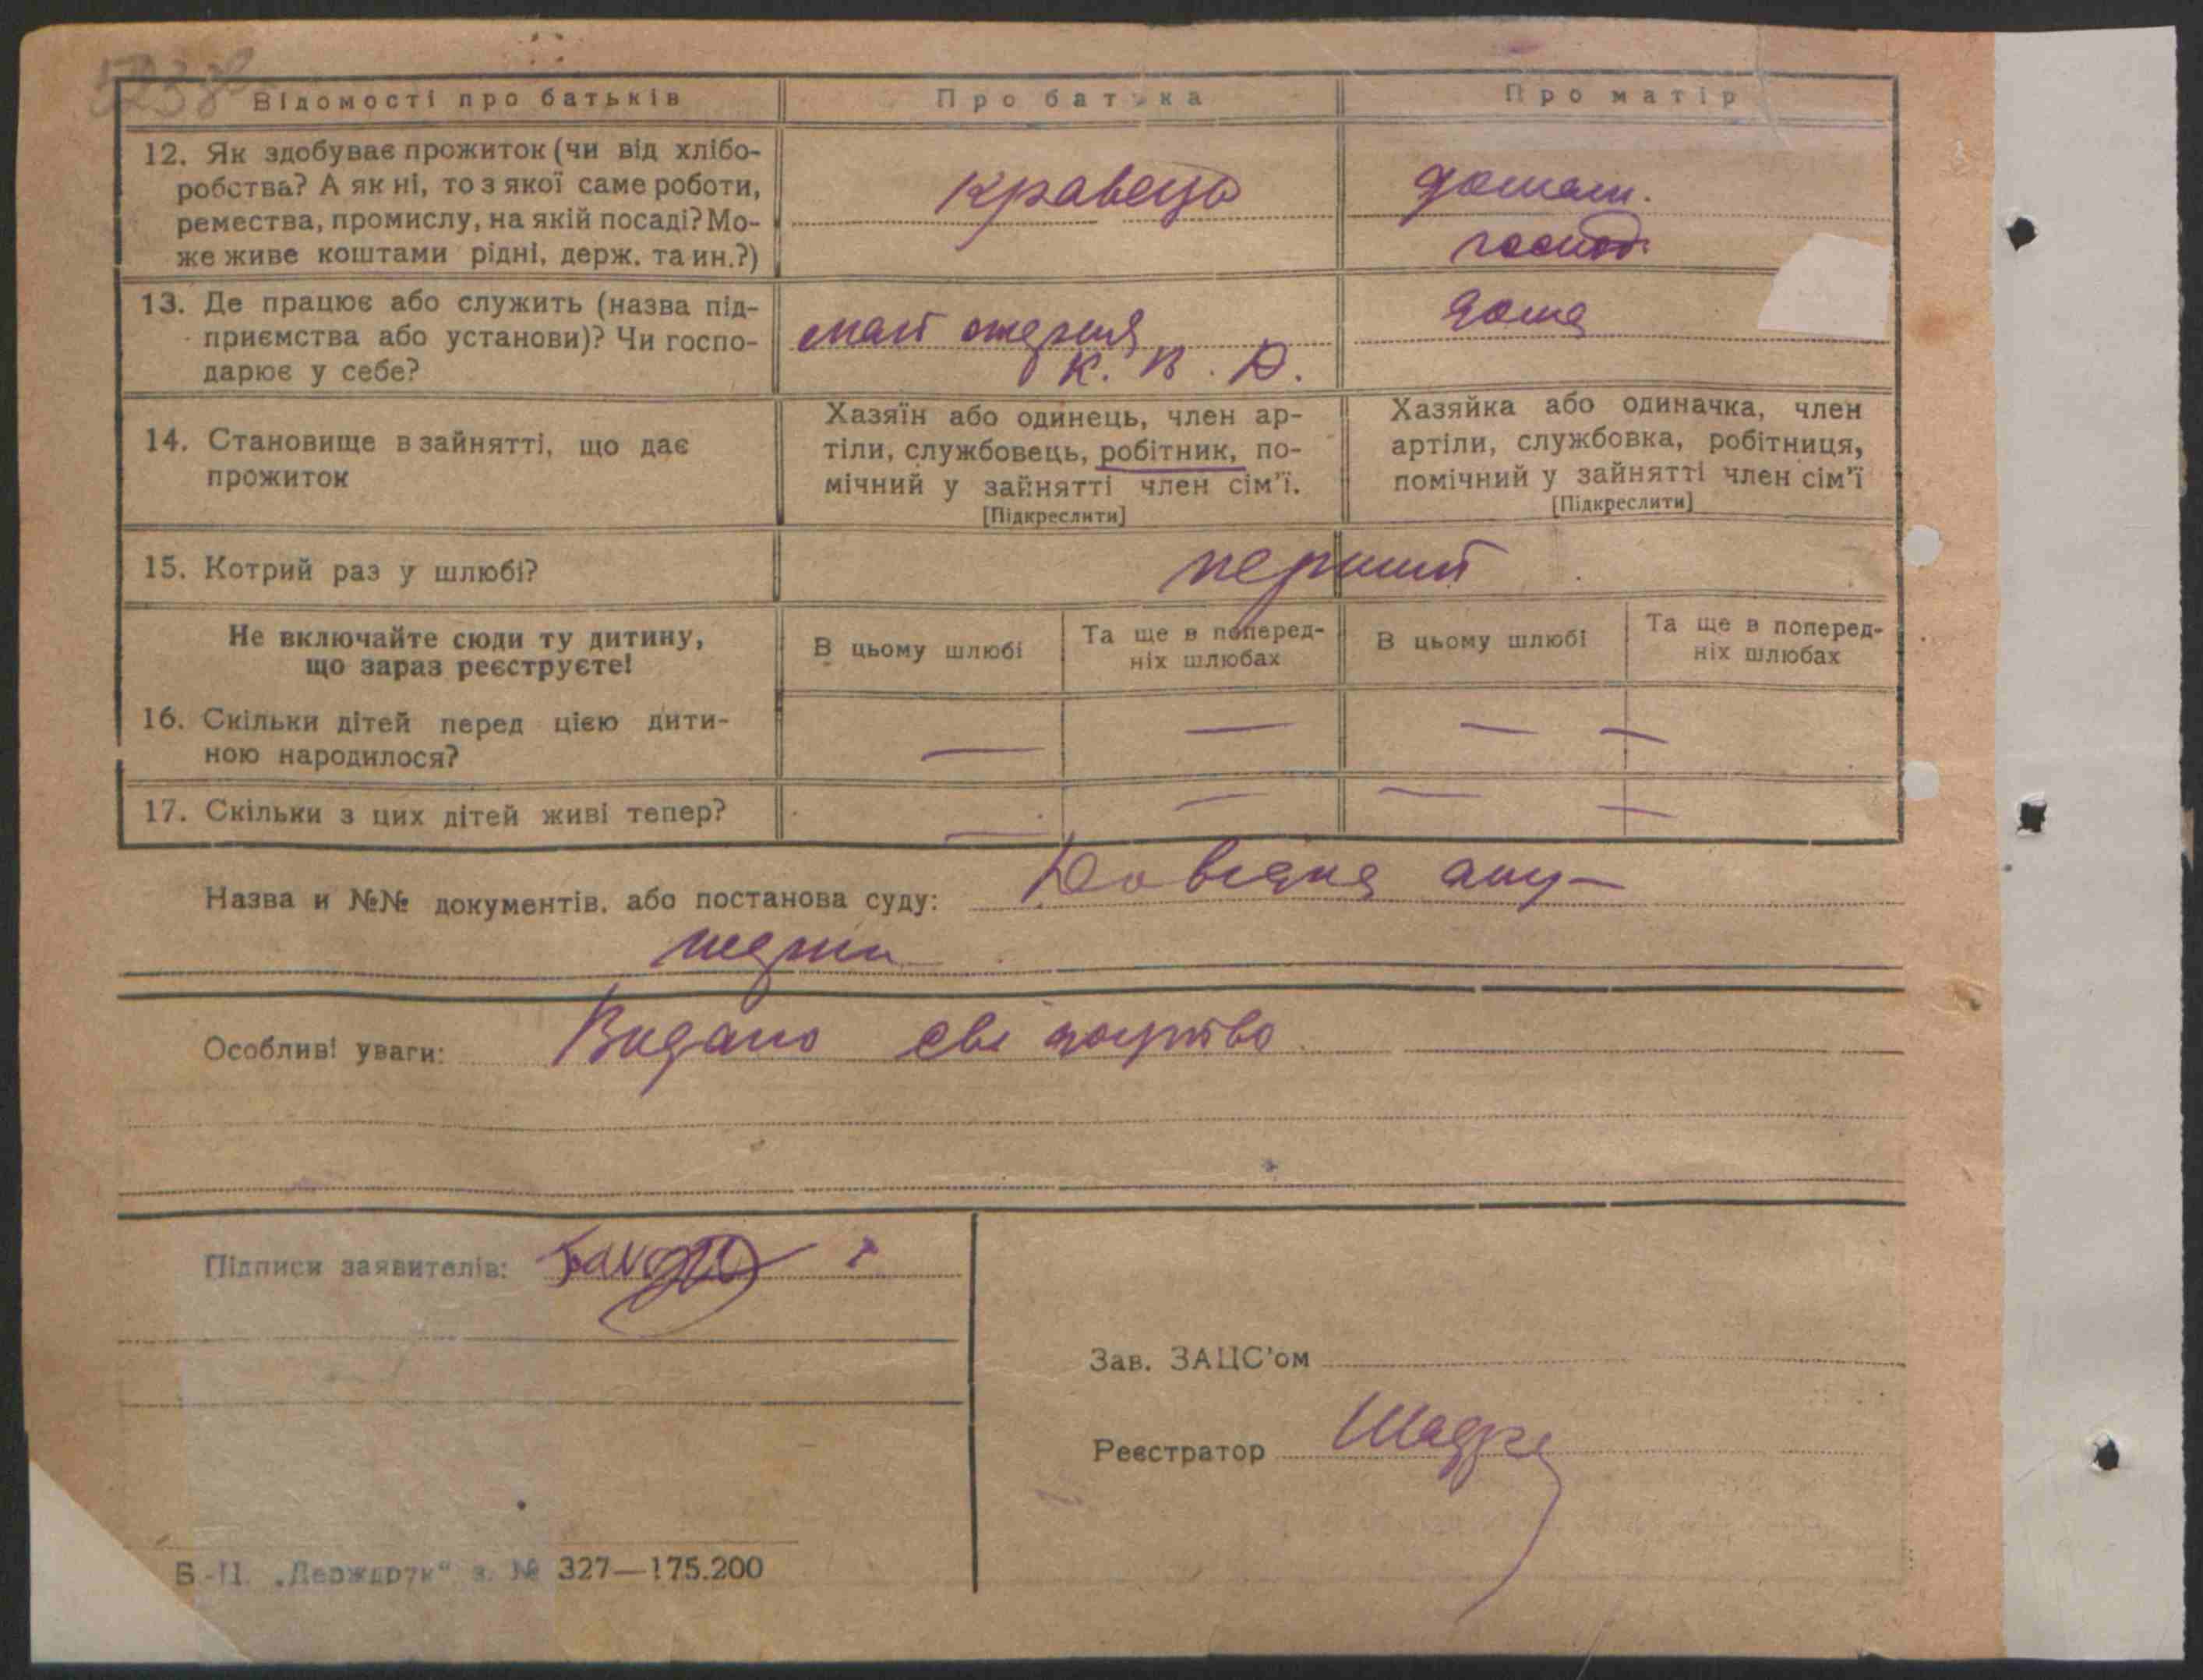 523 зв
Відомості про батьків
Про батька
Про матір
12. Як здобуває прожиток (чи від хлібо-
робства? А як ні, то з якої саме роботи,
ремества, промислу, на якій посаді? Мо-
же живе коштами рідні, держ. та ин.?)
кравець
домаш.
господ.
13. Де працює або служить (назва під-
приємства або установи)? Чи госпо-
дарює у себе?
К. В. О.
дома
14. Становище в зайнятті, що дає
прожиток
Хазяїн або одинець, член ар-
тіли, службовець, робітник, по-
мічний у зайнятті член сім'ї.
[Підкреслити]
Хазяйка або одиначка, член
артіли, службовка, робітниця,
помічний у зайнятті член сім'ї
[Підкреслити]
15. Котрий раз у шлюбі?
перший
Не включайте сюди ту дитину,
що зараз реєструєте!
В цьому шлюбі
Та ще в поперед-
ніх шлюбах
В цьому шлюбі
Та ще в поперед-
ніх шлюбах
16. Скільки дітей перед цією дити-
ною народилося?
— — — —
17. Скільки з цих дітей живі тепер?
— — — —
Назва и №№ документів, або постанова суду: Довідка аку-
шерки
Особливі уваги: Видано свідоцтво
Підписи заявителів:
Зав. ЗАЦС'ом
Реєстратор
Б.-Ц. „Держдрук“ з. № 327—175.200